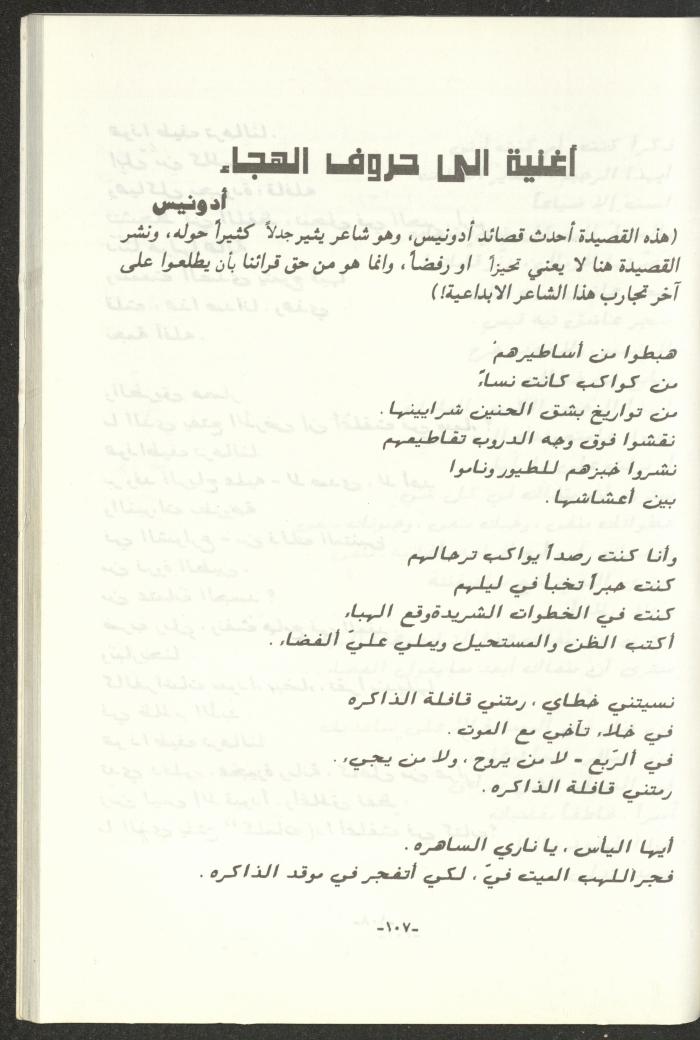 أغنية الى حروف الهجاء
أدونيس
(هذه القصيدة أحدث قصائد أدونيس، وهو شاعر يثير جدلاً كثيراً حوله، ونشر
القصيدة هنا لا يعني تحيزاً او رفضاً، وانما هو من حق قرائنا بأن يطلعوا على
آخر تجارب هذا الشاعر الابداعية!)
هبطوا من أساطيرهمْ
من كواكب كانت نساءً
من تواريخ بشق الحنين شرايينها.
نقشوا فوق وجه الدروب تقاطيعهم
نشروا خبزهم للطيور وناموا
بين أعشاشها.
وأنا كنت رصداً يواكب ترحالهم
كنت حبراً تخبأ في ليلهم
كنت في الخطوات الشريدة وقع الهباء
أكتب الظن والمستحيل ويملي عليّ الفضاء.
نسيتني خطاي، رمتني قافلة الذاكره
في خلاء تآخي مع الموت.
في ألرّبع - لا من يروح، ولا من يجيء.
رمتني قافلة الذاكره.
أيها اليأس، يا ناري الساهره.
فجر اللهب الميت فيّ، لكي أتفجر في موقد الذاكره.
-١٠٧-